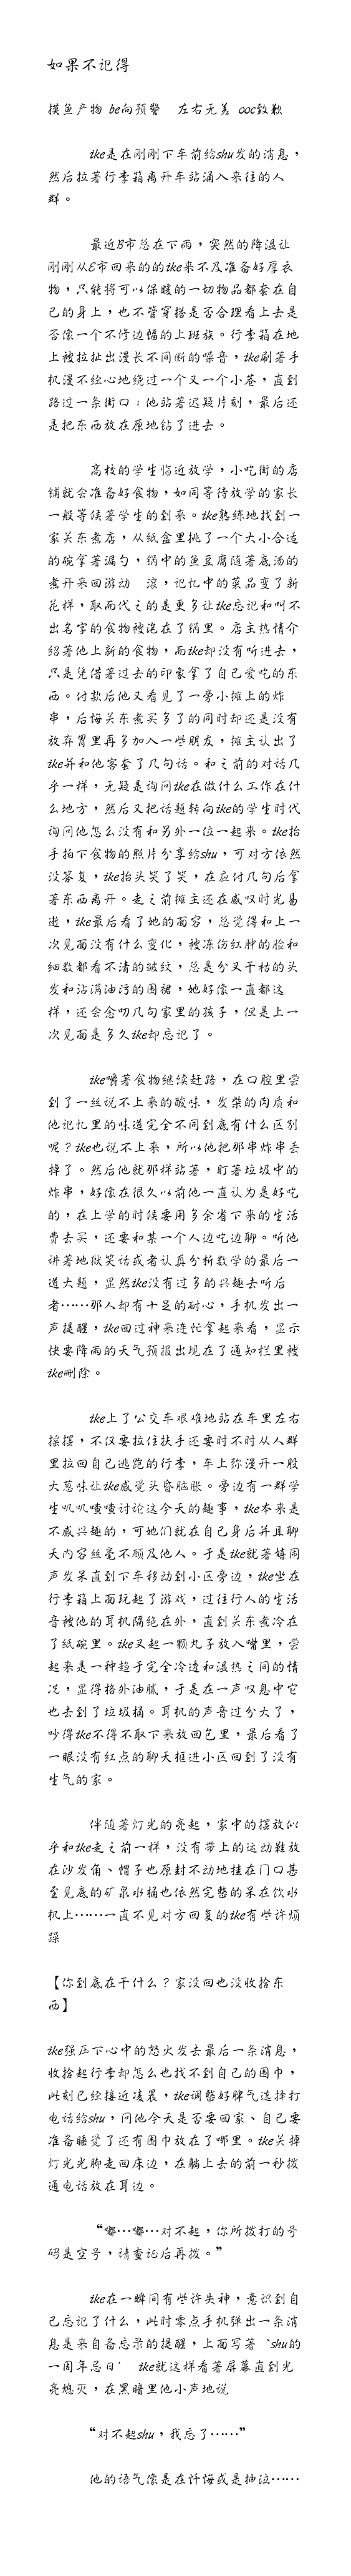 如果不记得
摸鱼产物 be向预警 左右无差 ooc致歉
ike是在刚刚下车前给shu发的消息，
然后拉著行李箱离开车站涌入来往的人
群。
最近B市总在下雨，突然的降温让
刚刚从E市回来的的ike来不及准备好厚衣
物，只能将可以保暖的一切物品都套在自
己的身上，也不管穿搭是否合理看上去是
否像一个不修边幅的上班族。行李箱在地
上被拉扯出漫长不间断的噪音，ike刷著手
机漫不经心地绕过一个又一个小巷，直到
路过一条街口；他站著迟疑片刻，最后还
是把东西放在原地钻了进去。
高校的学生临近放学，小吃街的店
铺就会准备好食物，如同等待放学的家长
一般等候著学生的到来。ike熟练地找到一
家关东煮店，从纸盒里挑了一个大小合适
的碗拿著漏勺，锅中的鱼豆腐随著底汤的
煮开来回游动 滚，记忆中的菜品变了新
花样，取而代之的是更多让ike忘记和叫不
出名字的食物被泡在了锅里。店主热情介
绍著他上新的食物，而ike却没有听进去，
只是凭借著过去的印象拿了自己爱吃的东
西。付款后他又看见了一旁小摊上的炸
串，后悔关东煮买多了的同时却还是没有
放弃胃里再多加入一些朋友，摊主认出了
ike并和他客套了几句话。和之前的对话几
乎一样，无疑是询问ike在做什么工作在什
么地方，然后又把话题转向ike的学生时代
询问他怎么没有和另外一位一起来。ike抬
手拍下食物的照片分享给shu，可对方依然
没答复，ike抬头笑了笑，在应付几句后拿
著东西离开。走之前摊主还在感叹时光易
逝，ike最后看了她的面容，总觉得和上一
次见面没有什么变化，被冻伤红肿的脸和
细数都看不清的皱纹，总是分叉干枯的头
发和沾满油污的围裙，她好像一直都这
样，还会念叨几句家里的孩子，但是上一
次见面是多久ike却忘记了。
ike嚼著食物继续赶路，在口腔里尝
到了一丝说不上来的酸味，发柴的肉质和
他记忆里的味道完全不同到底有什么区别
呢？ike也说不上来，所以他把那串炸串丢
掉了。然后他就那样站著，盯著垃圾中的
炸串，好像在很久以前他一直认为是好吃
的，在上学的时候要用多余省下来的生活
费去买，还要和某一个人边吃边聊。听他
讲著地狱笑话或者认真分析数学的最后一
道大题，显然ike没有过多的兴趣去听后
者……那人却有十足的耐心，手机发出一
声提醒，ike回过神来连忙拿起来看，显示
快要降雨的天气预报出现在了通知栏里被
ike删除。
ike上了公交车艰难地站在车里左右
摇摆，不仅要拉住扶手还要时不时从人群
里拉回自己逃跑的行李，车上弥漫开一股
大葱味让ike感觉头昏脑胀。旁边有一群学
生叽叽喳喳讨论这今天的趣事，ike本来是
不感兴趣的，可她们就在自己身后并且聊
天内容丝毫不顾及他人。于是ike就著嬉闹
声发呆直到下车移动到小区旁边，ike坐在
行李箱上面玩起了游戏，过往行人的生活
音被他的耳机隔绝在外，直到关东煮冷在
了纸碗里。ike叉起一颗丸子放入嘴里，尝
起来是一种趋于完全冷透和温热之间的情
况，显得格外油腻，于是在一声叹息中它
也去到了垃圾桶。耳机的声音过分大了，
吵得ike不得不取下来放回包里，最后看了
一眼没有红点的聊天框进小区回到了没有
生气的家。
伴随著灯光的亮起，家中的摆放似
乎和ike走之前一样，没有带上的运动鞋放
在沙发角、帽子也原封不动地挂在门口甚
至见底的矿泉水桶也依然完整的呆在饮水
机上……一直不见对方回复的ike有些许烦
躁
【你到底在干什么？家没回也没收拾东
西】
ike强压下心中的怒火发去最后一条消息，
收拾起行李却怎么也找不到自己的围巾，
此刻已经接近凌晨，ike调整好脾气选择打
电话给shu，问他今天是否要回家、自己要
准备睡觉了还有围巾放在了哪里。ike关掉
灯光光脚走回床边，在躺上去的前一秒拨
通电话放在耳边。
“嘟…嘟…对不起，你所拨打的号
码是空号，请查证后再拨。”
ike在一瞬间有些许失神，意识到自
己忘记了什么，此时零点手机弹出一条消
息是来自备忘录的提醒，上面写著‵shu的
一周年忌日′ ike就这样看著屏幕直到光
亮熄灭，在黑暗里他小声地说
“对不起shu，我忘了……”
他的语气像是在忏悔或是抽泣……